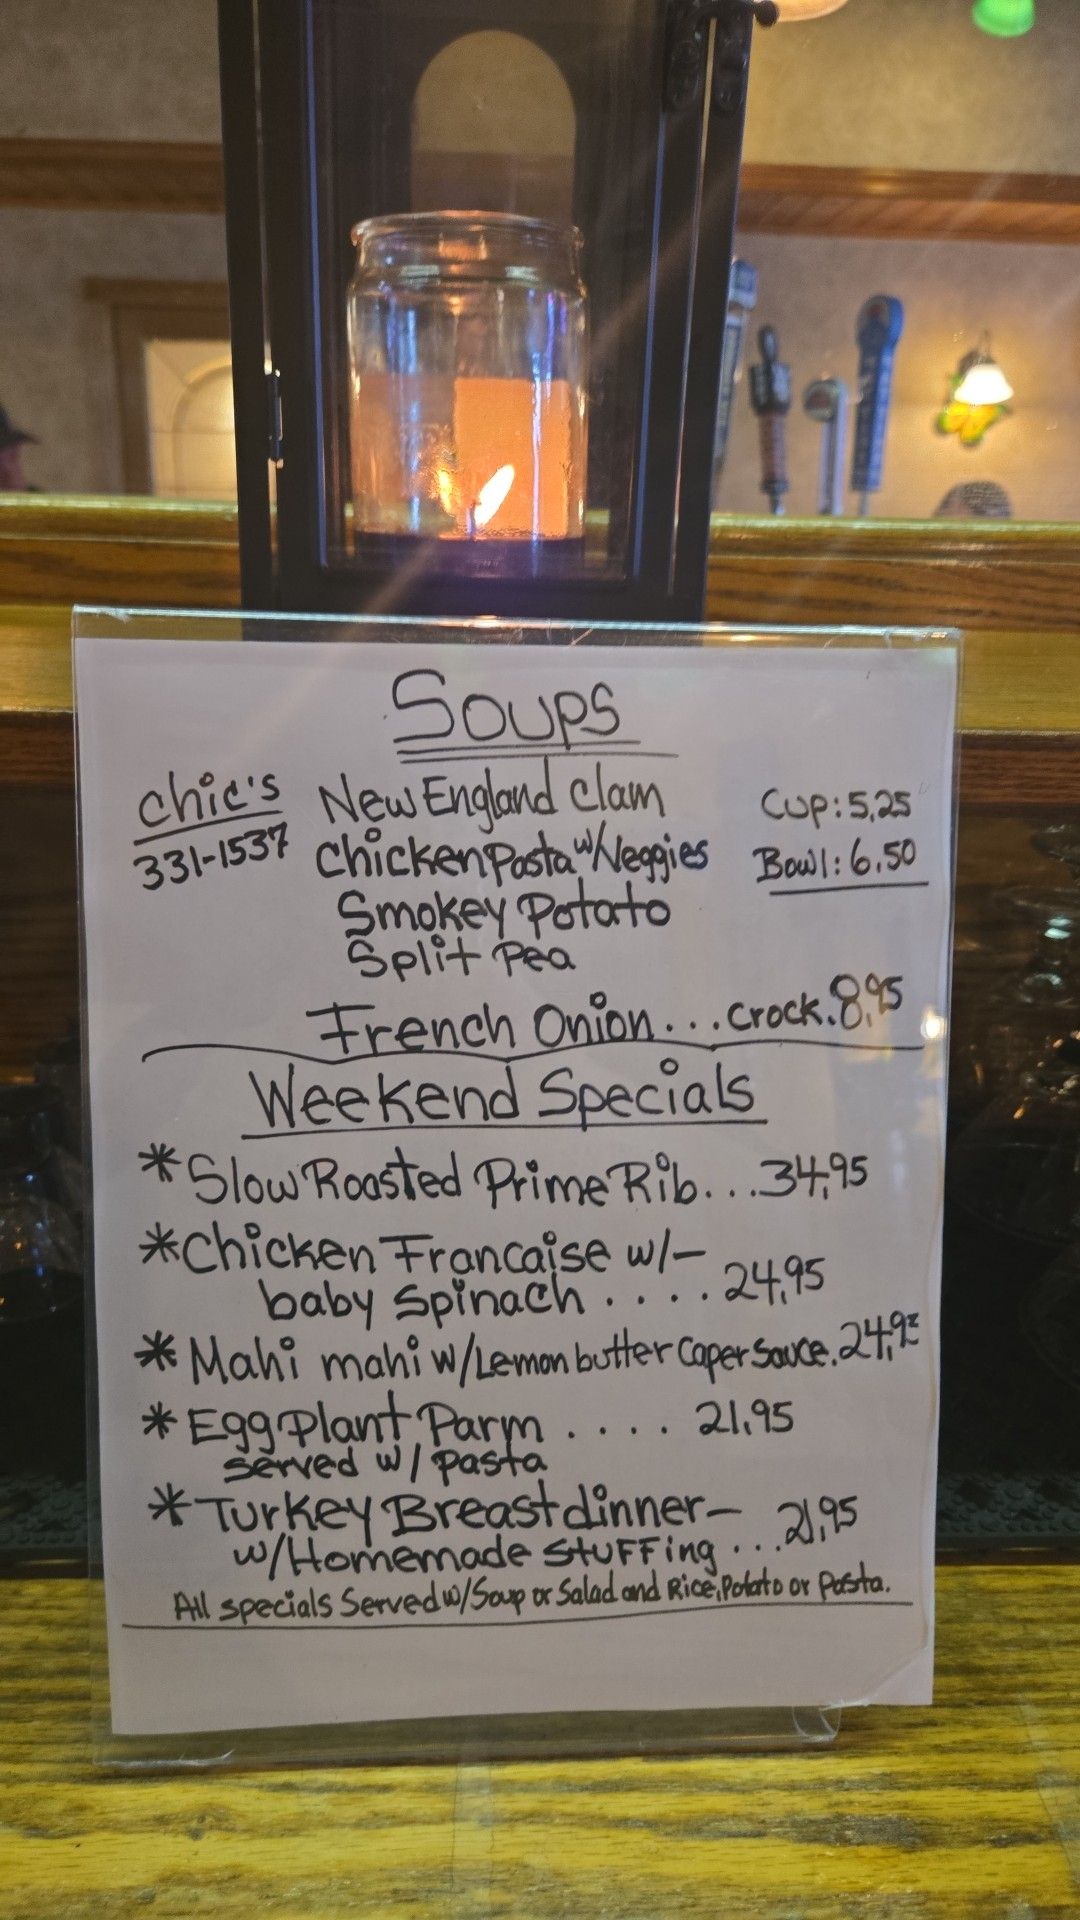 Soups
Chic's
331-1537
New England Clam
Chicken Pasta w/Veggies
Smokey Potato
Split Pea
Cup: 5.25
Bowl: 6.50
French Onion... Crock. 8.95
Weekend Specials
*Slow Roasted Prime Rib...34.95
*Chicken Francaise w/-
baby spinach .... 24.95
*Mahi mahi w/Lemon butter Caper Sauce. 24.95
*Egg Plant Parm .... 21.95
served w/ pasta
*Turkey Breast dinner-
w/Homemade Stuffing ...21.95
All specials Served w/Soup or Salad and Rice, Potato or Pasta.